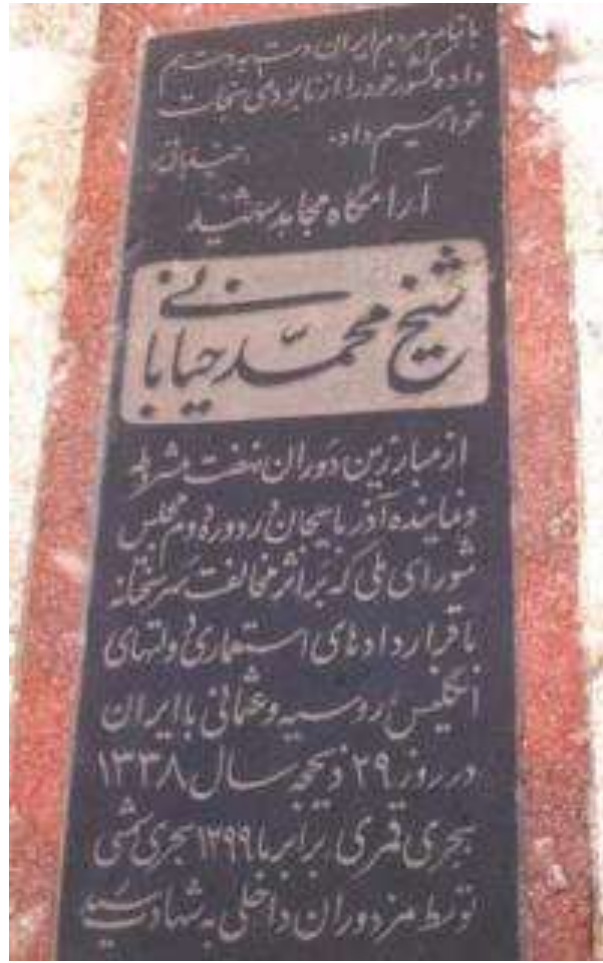 با تمام مردم ایران دست به دست هم
داده کشور خود را از نابودی نجات
خواهیم داد.
«خیابانی»
آرامگاه مجاهد شهید
شیخ محمد خیابانی
از مبارزین دوران نهضت مشروطه
و نماینده آذربایجان در دوره دوم مجلس
شورای ملی که بر اثر مخالفت سرسختانه
با قراردادهای استعماری دولتهای
انگلیس، روسیه و عثمانی با ایران
در روز ۲۹ ذیحجه سال ۱۳۳۸
هجری قمری برابر با ۱۲۹۹ هجری شمسی
توسط مزدوران داخلی به شهادت رسید